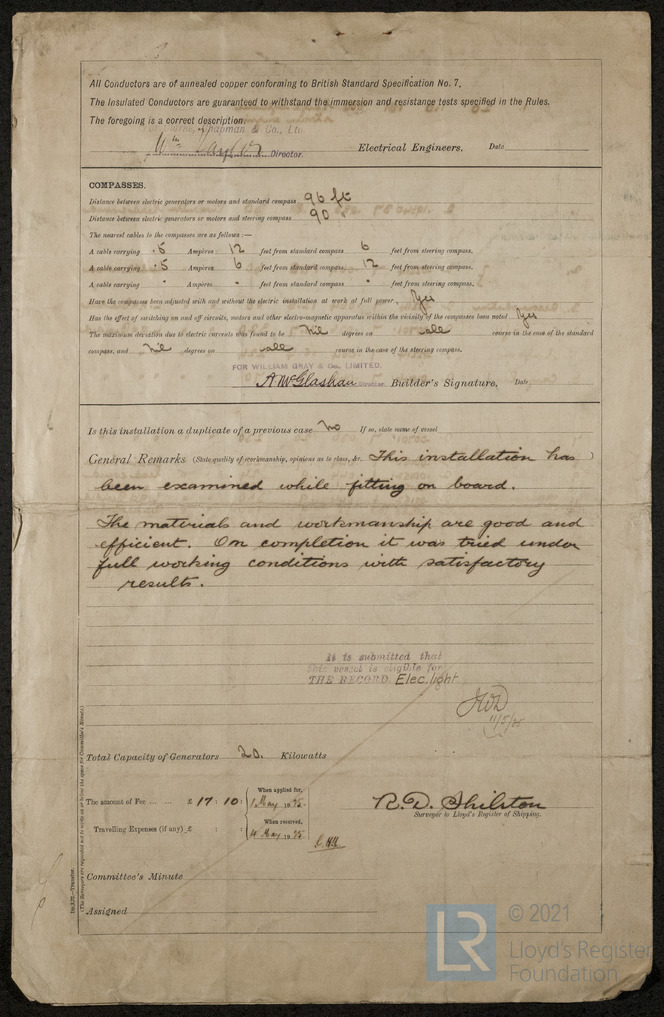 All Conductors are of annealed copper conforming to British Standard Specification No. 7.
The Insulated Conductors are guaranteed to withstand the immersion and resistance tests specified in the Rules.
The foregoing is a correct description.
Chapman & Co., Ltd.
Wm Director. Electrical Engineers. Date
COMPASSES.
Distance between electric generators or motors and standard compass 96 ft
Distance between electric generators or motors and steering compass 90
The nearest cables to the compasses are as follows:—
A cable carrying .5 Ampères 12 feet from standard compass 6 feet from steering compass.
A cable carrying .5 Ampères 6 feet from standard compass 12 feet from steering compass.
A cable carrying " Ampères " feet from standard compass " feet from steering compass.
Have the compasses been adjusted with and without the electric installation at work at full power, Yes
Has the effect of switching on and off circuits, motors and other electro-magnetic apparatus within the vicinity of the compasses been noted Yes
The maximum deviation due to electric currents was found to be Nil degrees on all course in the case of the standard
compass, and nil degrees on all course in the case of the steering compass.
FOR WILLIAM GRAY & Co. LIMITED.
A McGlashan Director. Builder's Signature. Date
Is this installation a duplicate of a previous case no If so, state name of vessel
General Remarks (State quality of workmanship, opinions as to class, &c. This installation has )
been examined while fitting on board.
The materials and workmanship are good and
efficient. On completion it was tried under
full working conditions with satisfactory
results.
It is submitted that
this vessel is eligible for
THE RECORD. Elec. light
11/5/25
Total Capacity of Generators 20. Kilowatts
The amount of Fee ... ... £ 17 : 10 : When applied for,
1 May 1925.
Travelling Expenses (if any) £ : : When received,
4 May 1925
R.D. Shilston
Surveyor to Lloyd's Register of Shipping.
Committee's Minute
Assigned
(The Surveyors are requested not to write on or below the space for Committee's Minute.)
LR
© 2021
Lloyd's Register
Foundation